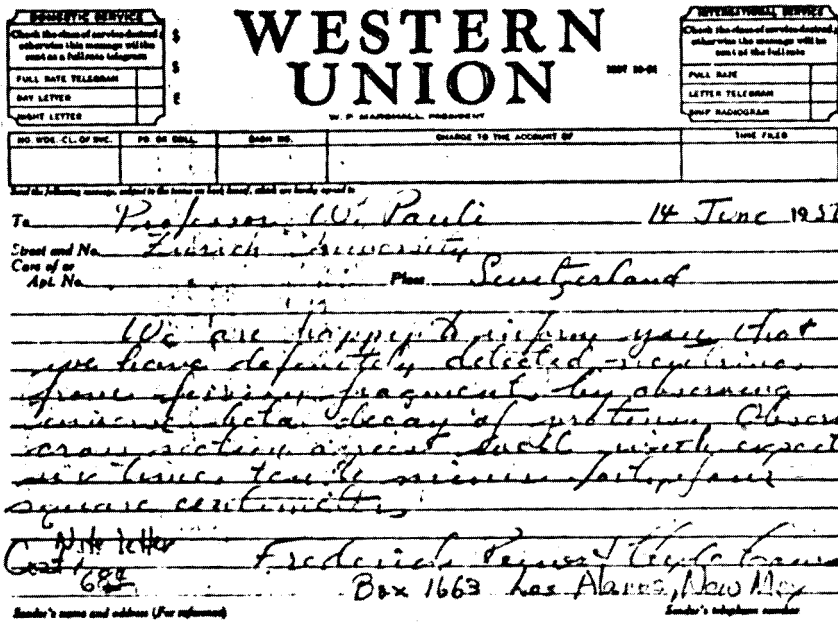 DOMESTIC SERVICE
Check the class of service desired;
otherwise this message will be
sent as a full rate telegram
FULL RATE TELEGRAM
DAY LETTER
NIGHT LETTER
$
$
E
WESTERN
UNION
W. P. MARSHALL, PRESIDENT
INTERNATIONAL SERVICE
Check the class of service desired;
otherwise the message will be
sent at the full rate
FULL RATE
LETTER TELEGRAM
SHIP RADIOGRAM
NO. WDS.-CL. OF SVC.
PD. OR COLL.
CASH NO.
CHARGE TO THE ACCOUNT OF
TIME FILED
Send the following message, subject to the terms on back hereof, which are hereby agreed to
To Professor W. Pauli 14 June
Street and No. Zurich University
Care of or
Apt. No. Place Switzerland
We are happy to inform you that
we have definitely detected neutrinos
from fission fragments by observing
inverse beta decay of protons. Observ
cross section agrees well with expect
six times ten to minus forty four
square centimeters
Nite letter
68¢
Frederick Reines & Clyde Cowan
Box 1663 Los Alamos, New Mex
Sender's name and address (For reference)
Sender's telephone number